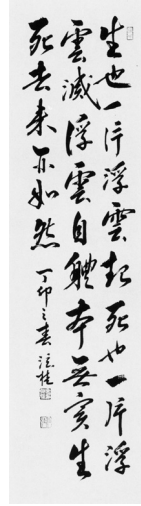 生也一片浮雲起死也一片浮
雲滅浮雲自體本無實生
死去来亦如然
丁卯之春